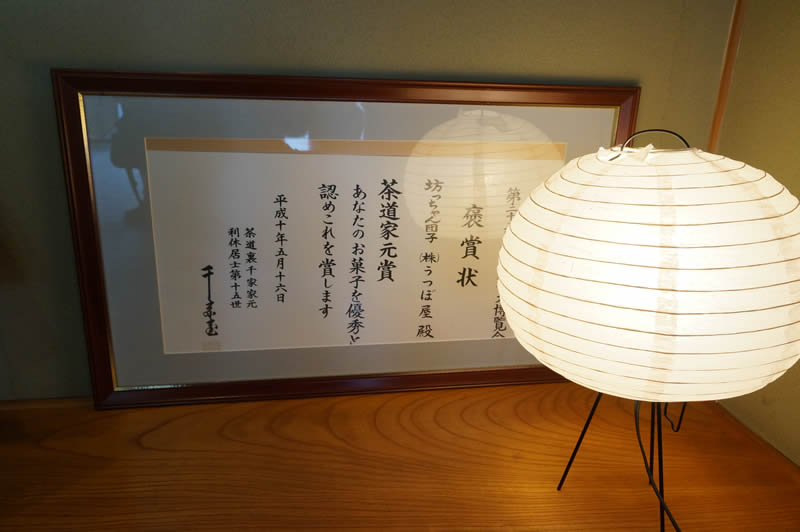 第二十
大博覧会
褒賞状
坊っちゃん団子 ㈱うつぼ屋 殿
茶道家元賞
あなたのお菓子を優秀と
認めこれを賞します
平成十年五月十六日
茶道裏千家家元
利休居士第十五世
千宗室